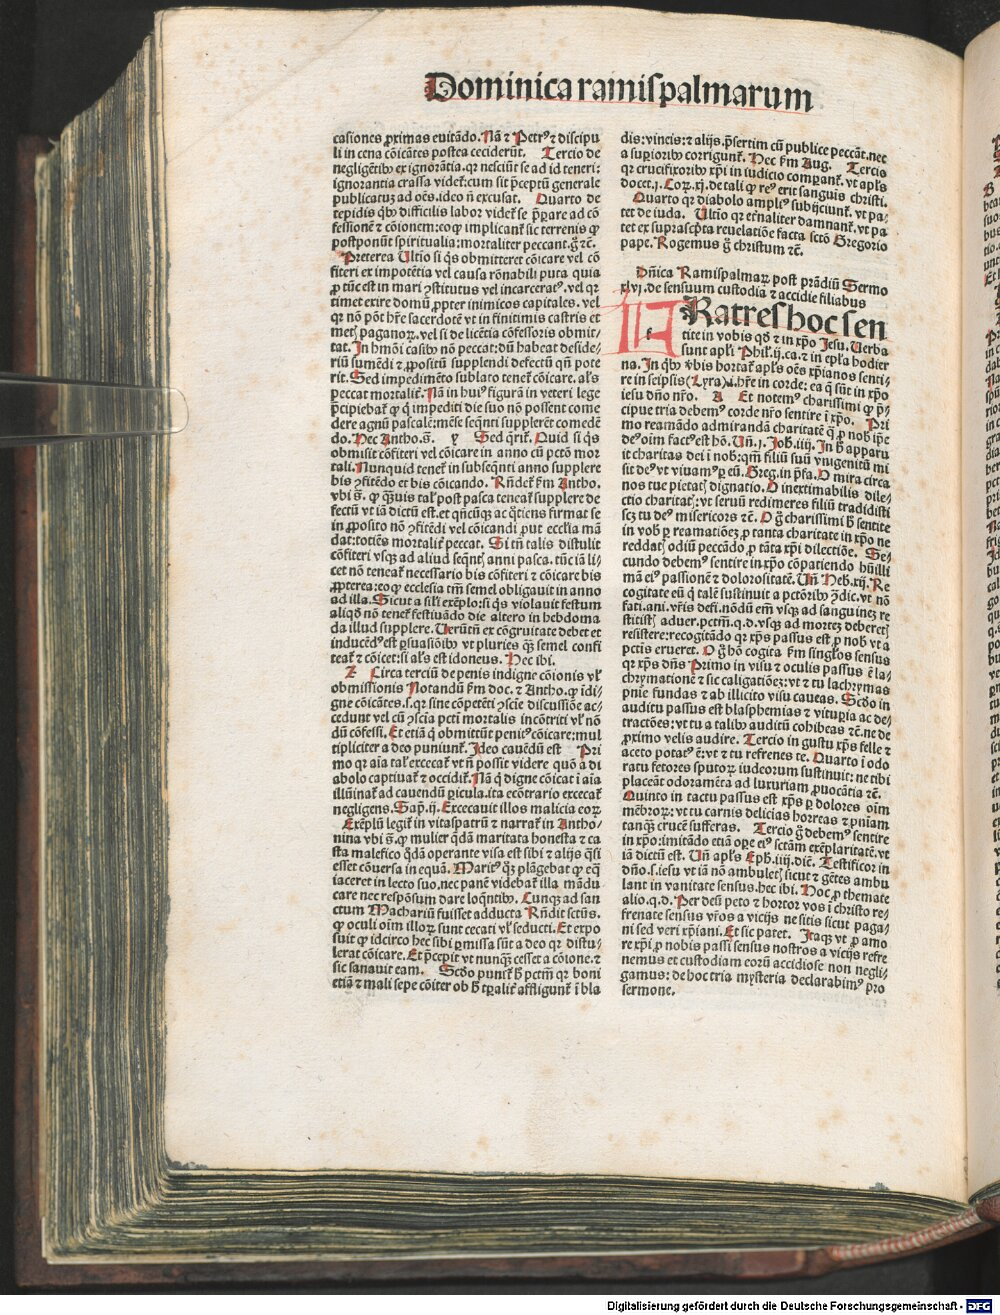 Dominica ramispalmarum
casiones ꝓximas euitãdo. Nã ⁊ Petrꝰ ⁊ discipu
li in cena cõicãtes postea ceciderũt. Tercio de
negligẽtibꝫ ex ignorãtia. qr nesciũt se ad id teneri:
ignorantia crassa videt̃: cum sit p̃ceptũ generale
publicatuꝫ ad oẽs. ideo ñ excusat. Quarto de
tepidis qbꝫ difficilis labor videt̃ se p̃ꝑare ad cõ
fessionẽ ⁊ cõionem: eo ꝙ implicant̃ sic terrenis ꝙ
postponũt spiritualia: mortaliter peccant. g̃ ⁊c̃.
Preterea Ultio si q̃s obmitteret cõicare vel cõ
fiteri ex impotẽtia vel causa rõnabili puta quia
ꝓ tũc est in mari ꝯstitutus vel incarceratꝰ. vel qr
timet exire domũ ꝓpter inimicos capitales. vel
qr nõ põt hr̃e sacerdotẽ vt in finitimis castris et
metꝭ paganoꝝ. vel si de licẽtia cõfessoris obmit/
tat. In hmõi casibꝫ nõ peccat: dũ habeat deside/
riũ sumẽdi ⁊ ꝓpositũ supplendi defectũ qñ pote
rit. Sed impedimẽto sublato tenet̃ cõicare. als̃
peccat mortalir̃. Nã in huiꝰ figurã in veteri lege
p̃cipiebat̃ ꝙ q̃ impediti die suo nõ possent come
dere agnũ pascalẽ: mẽse seq̃nti supplerẽt comedẽ
do. Hec Antho. s̃. y Sed q̃rit̃. Quid si q̃s
obmisit cõfiteri vel cõicare in anno cũ pctõ mor
tali. Nunquid tenet̃ in subseq̃nti anno supplere
bis ꝯfitẽdo et bis cõicando. Rñdet̃ ẜm Antho.
vbi s̃. ꝙ q̃uis talꝭ post pasca teneat̃ supplere de
fectũ vt iã dictũ est. et qñcũqꝫ ac q̃tiens firmat se
in ꝓposito nõ ꝯfitẽdi vel cõicandi ꝓut eccľia mã
dat: totiẽs mortalir̃ peccat. Si tñ talis distulit
cõfiteri vsqꝫ ad aliud seq̃ntꝭ anni pasca. tũc iã li
cet nõ teneat̃ necessario bis cõfiteri ⁊ cõicare bis
ꝓpterea: eo ꝙ ecclesia tm̃ semel obligauit in anno
ad illa. Sicut a sil̃i exẽplo: si q̃s violauit festum
aliqd̃ nõ tenet̃ festiuãdo die altero in hebdoma
da illud supplere. Uerũtñ ex cõgruitate debet et
inducẽdꝰ est ꝑsuasiõibꝫ vt pluries qꝫ̃ semel confi
teat̃ ⁊ cõicet: si als̃ est idoneus. Hec ibi.
Z Circa terciũ de penis indigne cõionis vľ
obmissionis Notandũ ẜm doc. ⁊ Antho. ꝙ ĩdi/
gne cõicãtes. s. qr sine cõpetẽti ꝯscie discussiõe ac/
cedunt vel cũ ꝯscia pcti mortalis incõtriti vľ nõ
dũ cõfessi. Et etiã q̃ obmittũt penitꝰ cõicare: mul
tipliciter a deo puniunt̃. Ideo cauẽdũ est Pri
mo qr aĩa talꝭ excecat̃ vt ñ possit videre quõ a di
abolo captiuat̃ ⁊ occidit̃. Nã q̃ digne cõicat ĩ aĩa
illũinat̃ ad cauendũ ꝑicula. ita ecõtrario excecat̃
negligens. Sap̃. ij. Excecauit illos malicia eoꝝ
Exẽplũ legit̃ in vitaspatrũ ⁊ narrat̃ in Antho/
nina vbi s̃. ꝙ mulier q̃dã maritata honesta ⁊ ca
sta malefico q̃dã operante visa est sibi ⁊ alijs q̃si
esset cõuersa in equã. Maritꝰ qꝫ̃ plãgebat ꝙ eq̃
iaceret in lecto suo. nec panẽ videbat̃ illa mãdu
care nec respõsum dare loq̃ntibꝫ. Cunqꝫ ad san
ctum Machariũ fuisset adducta Rñdit sctũs.
ꝙ oculi oĩm illoꝝ sunt cecati vľ seducti. Et expo
suit ꝙ idcirco hec sibi ꝑmissa sũt a deo qr distu/
lerat cõicare. Et p̃cepit vt nunqꝫ̃ cesset a cõione. ⁊
sic sanauit eam. Scd̃o punit̃ h̃ pctm̃ qr boni
etiã ⁊ mali sepe cõiter ob h̃ tꝑalir̃ affligunt̃ ĩ bla
dis: vineis: ⁊ alijs. p̃sertim cũ publice peccãt. nec
a suꝑioribꝫ corrigunt̃. Hec ẜm Aug. Tercio
qr crucifixoribꝫ xp̃i in iudicio comꝑant̃. vt apľs
docet. j. Coꝝ. xj. de tali ꝙ reꝰ erit sanguis christi.
Quarto qr diabolo ampliꝰ subijciunt̃. vt pa/
tet de iuda. Ultĩo qr et̃naliter damnant̃. vt pa
tet ex suprascp̃ta reuelatiõe facta sctõ Gregorio
pape. Rogemus g̃ christum ⁊c̃.
Dñica Ramispalmaꝝ post prãdiũ Sermo
xlvj. de sensuum custodia ⁊ accidie filiabus
FRatres hoc sen
tite in vobis qd̃ ⁊ in xp̃o Jesu. Uerba
sunt apľi Phil̃. ij. ca. ⁊ in epľa hodier
na. In qbꝫ ꝟbis hortat̃ apľs oẽs xp̃ianos senti/
re in seipsis (Lyra) i. hr̃e in corde: ea q̃ sũt in xp̃o
iesu dño nr̃o. A Et notemꝰ charissimi ꝙ p̃/
cipue tria debemꝰ corde nr̃o sentire ĩ xp̃o. Pri
mo reamãdo admirandã charitatẽ q̃ ꝓ nob̃ ip̃e
deꝰ oĩm factꝰ est hõ. Uñ. j. Joh̃. iiij. In h̃ apparu
it charitas dei ĩ nob̃: qm̃ filiũ suũ vnigenitũ mi
sit deꝰ vt viuamꝰ ꝑ eũ. Greg. in p̃fa. O mira circa
nos tue pietatꝭ dignatio. O inextimabilis dile/
ctio charitatꝭ: vt seruũ redimeres filiũ tradidisti
scꝫ tu deꝰ misericors ⁊c̃. O g̃ charissimi h̃ sentite
in vob̃ ꝑ reamatiõeꝫ ꝓ tanta charitate in xp̃o ne
reddatꝭ odiũ peccãdo ꝓ tãta xp̃i dilectiõe. Se/
cundo debemꝰ sentire in xp̃o cõpatiendo hũili
mã eiꝰ passionẽ ⁊ dolorositatẽ. Uñ Heb. xij. Re
cogitate eũ q̃ talẽ sustinuit a pctõribꝫ ꝯ̃dic. vt nõ
fati. ani. vr̃is defi. nõdũ em̃ vsqꝫ ad sanguineꝫ re
stitistꝭ aduer. pctm̃. q. d. vsqꝫ ad morteꝫ deberetꝭ
resistere: recogitãdo qr xp̃s passus est ꝓ nob̃ vt a
pctis erueret. O g̃ hõ cogita ẜm singl̃os sensus
qr xp̃s dñs Primo in visu ⁊ oculis passus ẽ la/
chrymationẽ ⁊ sic caligatiõeꝫ: vt ⁊ tu lachrymas
pnie fundas ⁊ ab illicito visu caueas. Scd̃o in
auditu passus est blasphemias ⁊ vitupia ac de/
tractões: vt tu a talibꝫ auditũ cohibeas ⁊c̃. ne de
ꝓximo velis audire. Tercio in gustu xp̃s felle ⁊
aceto potatꝰ ẽ: vt ⁊ tu refrenes te. Quarto ĩ odo
ratu fetores sputoꝝ iudeorum sustinuit: ne tibi
placeãt odoramẽta ad luxuriam ꝓuocãtia ⁊c̃.
Quinto in tactu passus est xp̃s ꝑ dolores oĩm
mẽbroꝝ: vt tu carnis delicias horreas ⁊ pniam
tanqꝫ̃ crucẽ sufferas. Tercio g̃ debemꝰ sentire
in xp̃o: imitãdo etiã oꝑe eiꝰ sctãm exẽplaritatẽ. vt
iã dictũ est. Uñ apľs Eph̃. iiij. diẽ. Testificor in
dño. s. iesu vt iã nõ ambuletꝭ sicut ⁊ gẽtes ambu
lant in vanitate sensus. hec ibi. Hoc ꝓ themate
alio. q. d. Per deũ peto ⁊ hortor vos ĩ christo re/
frenate sensus vr̃os a vicijs ne sitis sicut paga/
ni sed veri xp̃iani. Et sic patet. Itaqꝫ vt ꝓ amo
re xp̃i ꝓ nobis passi sensus nostros a vicijs refre
nemus et custodiam eorũ accidiose non negli/
gamus: de hoc tria mysteria declarabimꝰ pro
sermone.
Digitalisierung gefördert durch die Deutsche Forschungsgemeinschaft - DFG